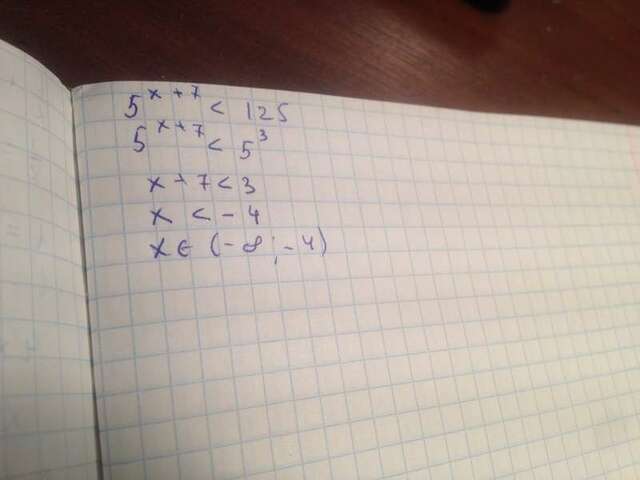 5^{x+7} < 125
5^{x+7} < 5^3
x + 7 < 3
x < -4
x ∈ (-∞; -4)